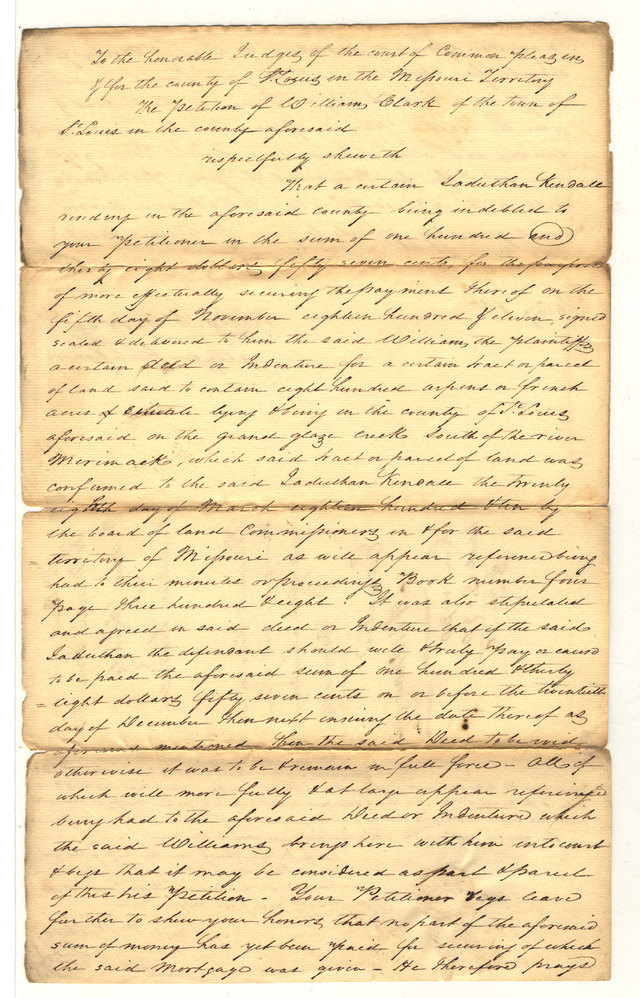 To the honorable Judges of the court of Common pleas in
& for the county of St. Louis in the Missouri Territory
The Petition of William Clark of the town of
St. Louis in the county aforesaid
respectfully sheweth
That a certain Jaduthan Kendall
residing in the aforesaid county being indebted to
your Petitioner in the sum of one hundred and
thirty eight dollars fifty seven cents, for the purpose
of more effectually securing the payment thereof on the
fifth day of November eighteen hundred & eleven, signed
sealed & delivered to him the said William, the plaintiff
a certain deed or Indenture for a certain tract or parcel
of land said to contain eight hundred arpens or french
acres & situate lying & being in the county of St. Louis
aforesaid on the grand glaze creek South of the river
Merimack, which said tract or parcel of land was
confirmed to the said Jaduthan Kendall the twenty
eighth day of March eighteen hundred & ten by
the board of land Commissioners in & for the said
territory of Missouri as will appear reference being
had to their minutes or proceedings Book number four
page three hundred & eight. It was also stipulated
and agreed in said deed or Indenture that if the said
Jaduthan the defendant should well & truly pay or cause
to be paid the aforesaid sum of one hundred & thirty
= eight dollars fifty seven cents on or before the twentieth
day of December then next ensuing the date thereof as
aforesaid mentioned then the said Deed to be void
otherwise it was to be & remain in full force - All of
which will more fully & at large appear reference
being had to the aforesaid Deed or Indenture which
the said William brings here with him into court
& begs that it may be considered as part & parcel
of this his Petition - Your Petitioner begs leave
further to shew your honors, that no part of the aforesaid
sum of money has yet been paid for securing of which
the said Mortgage was given - He therefore prays